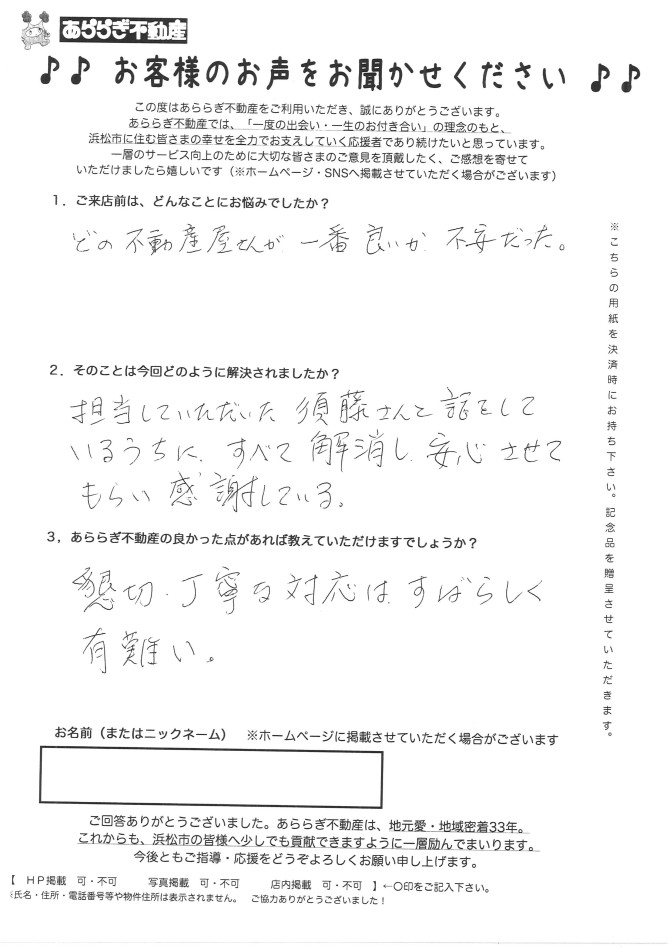 あららぎ不動産
♪♪ お客様のお声をお聞かせください ♪♪
この度はあららぎ不動産をご利用いただき、誠にありがとうございます。
あららぎ不動産では、「一度の出会い・一生のお付き合い」の理念のもと、
浜松市に住む皆さまの幸せを全力でお支えしていく応援者であり続けたいと思っています。
一層のサービス向上のために大切な皆さまのご意見を頂戴したく、ご感想を寄せて
いただけましたら嬉しいです（※ホームページ・SNSへ掲載させていただく場合がございます）
１．ご来店前は、どんなことにお悩みでしたか？
どの不動産屋さんが一番良いか不安だった。
２．そのことは今回どのように解決されましたか？
担当していただいた須藤さんと話をして
いるうちに、すべて解消し、安心させて
もらい感謝している。
３，あららぎ不動産の良かった点があれば教えていただけますでしょうか？
懇切・丁寧な対応は、すばらしく
有難い。
※こちらの用紙を決済時にお持ち下さい。記念品を贈呈させていただきます。
お名前（またはニックネーム） ※ホームページに掲載させていただく場合がございます
ご回答ありがとうございました。あららぎ不動産は、地元愛・地域密着33年。
これからも、浜松市の皆様へ少しでも貢献できますように一層励んでまいります。
今後ともご指導・応援をどうぞよろしくお願い申し上げます。
【 ＨＰ掲載 可・不可 写真掲載 可・不可 店内掲載 可・不可 】←〇印をご記入下さい。
※氏名・住所・電話番号等や物件住所は表示されません。 ご協力ありがとうございました！